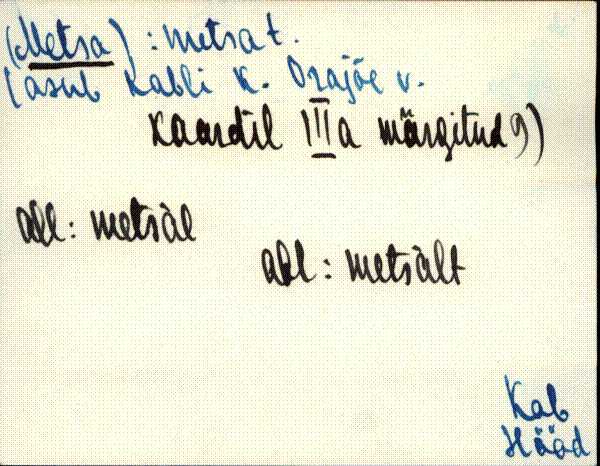 (Metsa) : metsa t.
(asub Kabli k. Orajõe v.
Kaardil IIIa märgitud 9)
all: metsàl
abl: metsàlt
Kab
Hääd